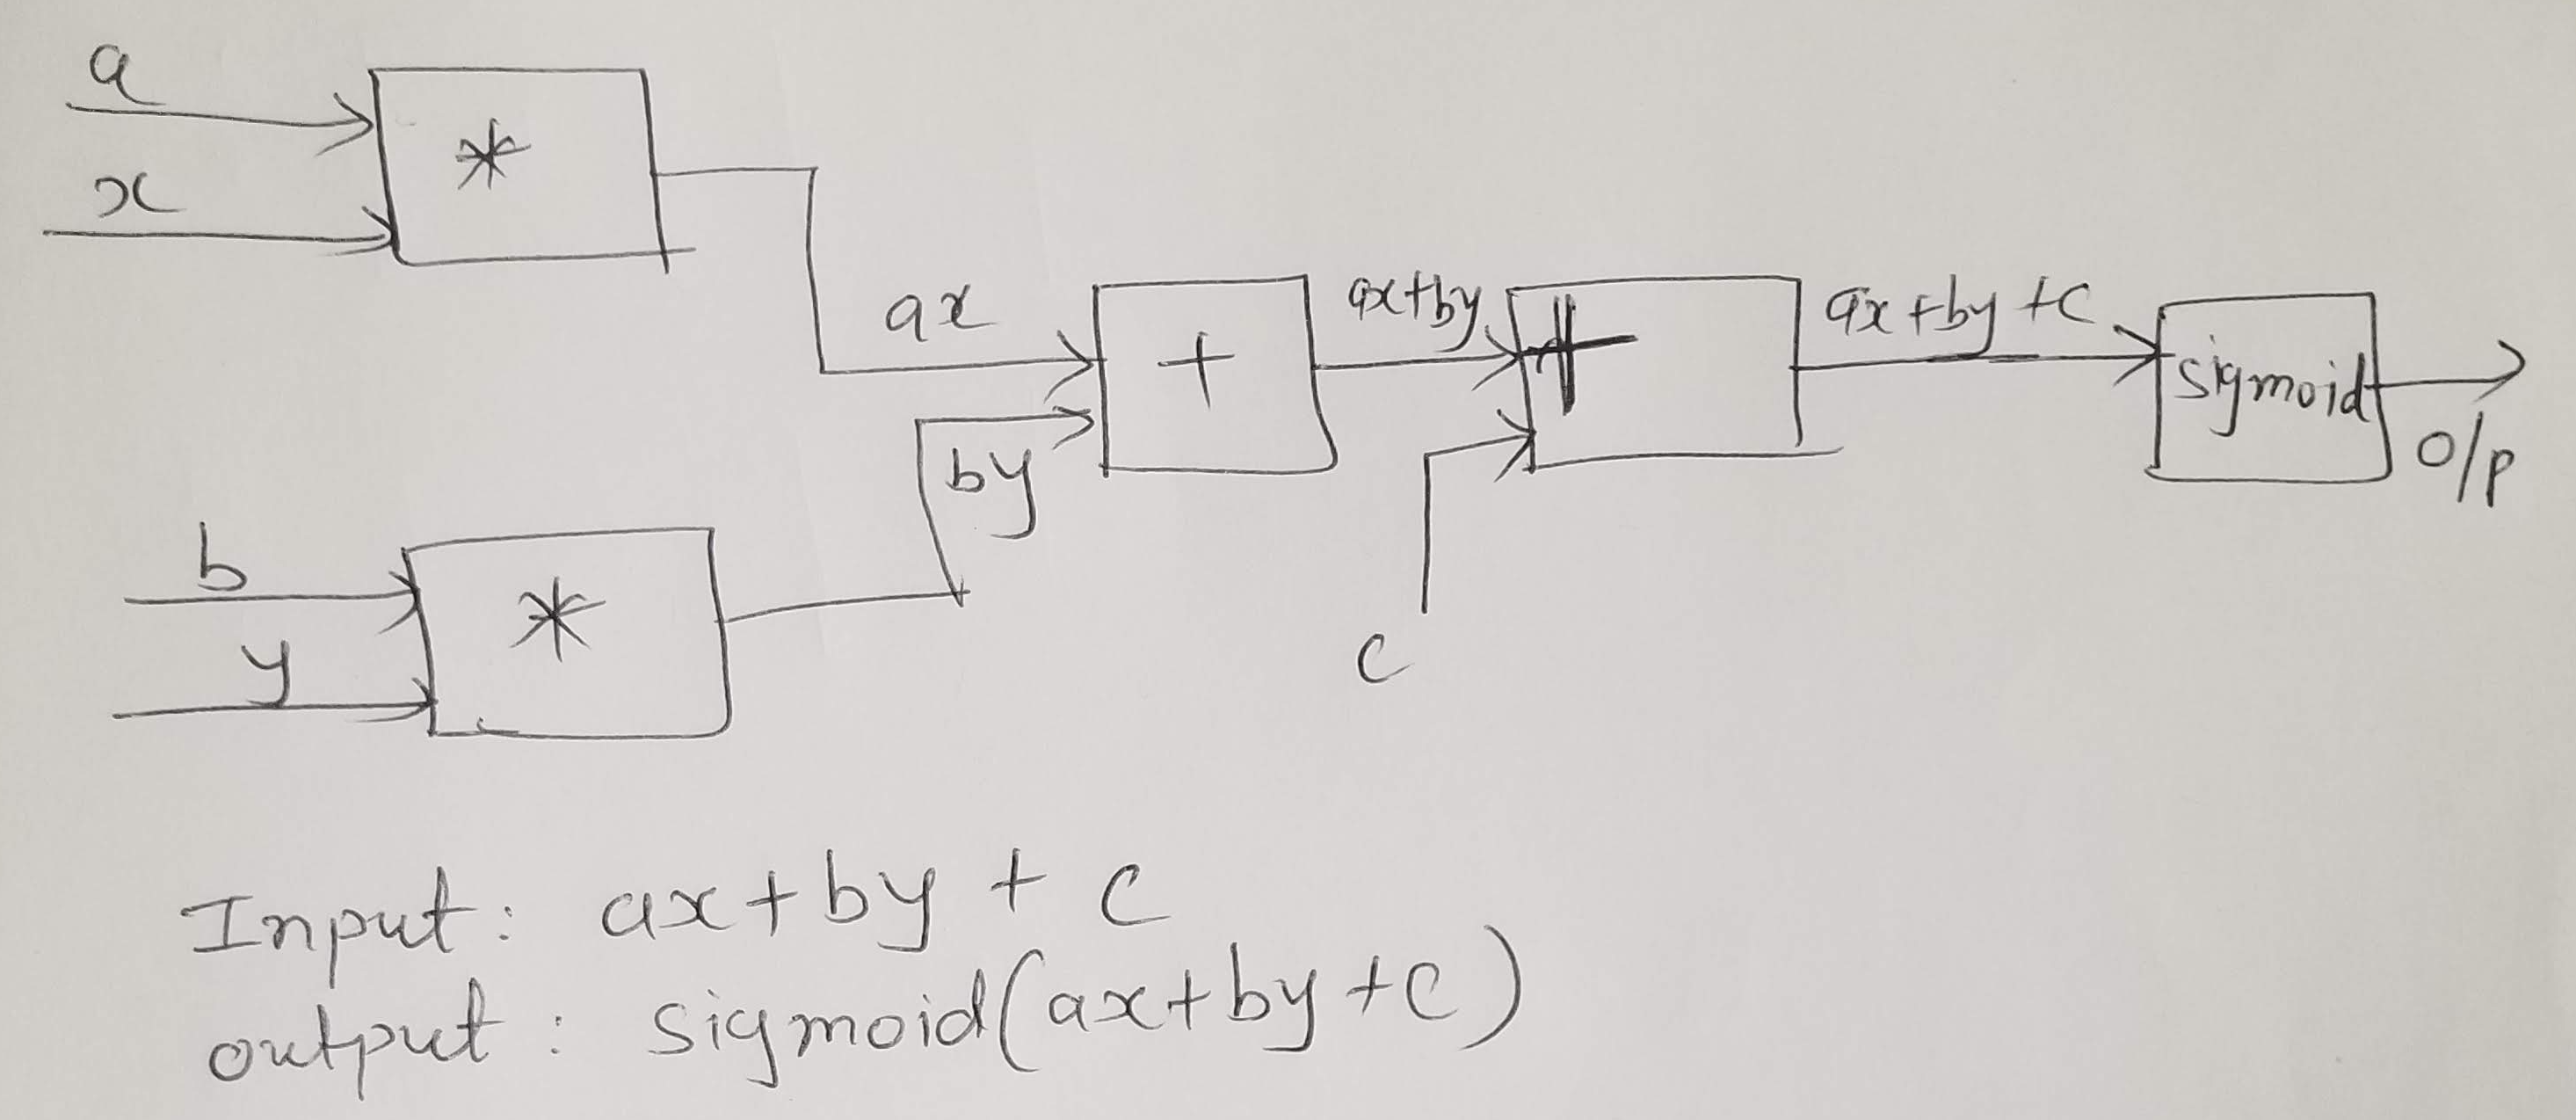 a
*
x
ax
+
ax+by
+
ax+by+c
sigmoid
O/p
by
b
*
y
c
Input: ax+by + c
output: sigmoid(ax+by+c)